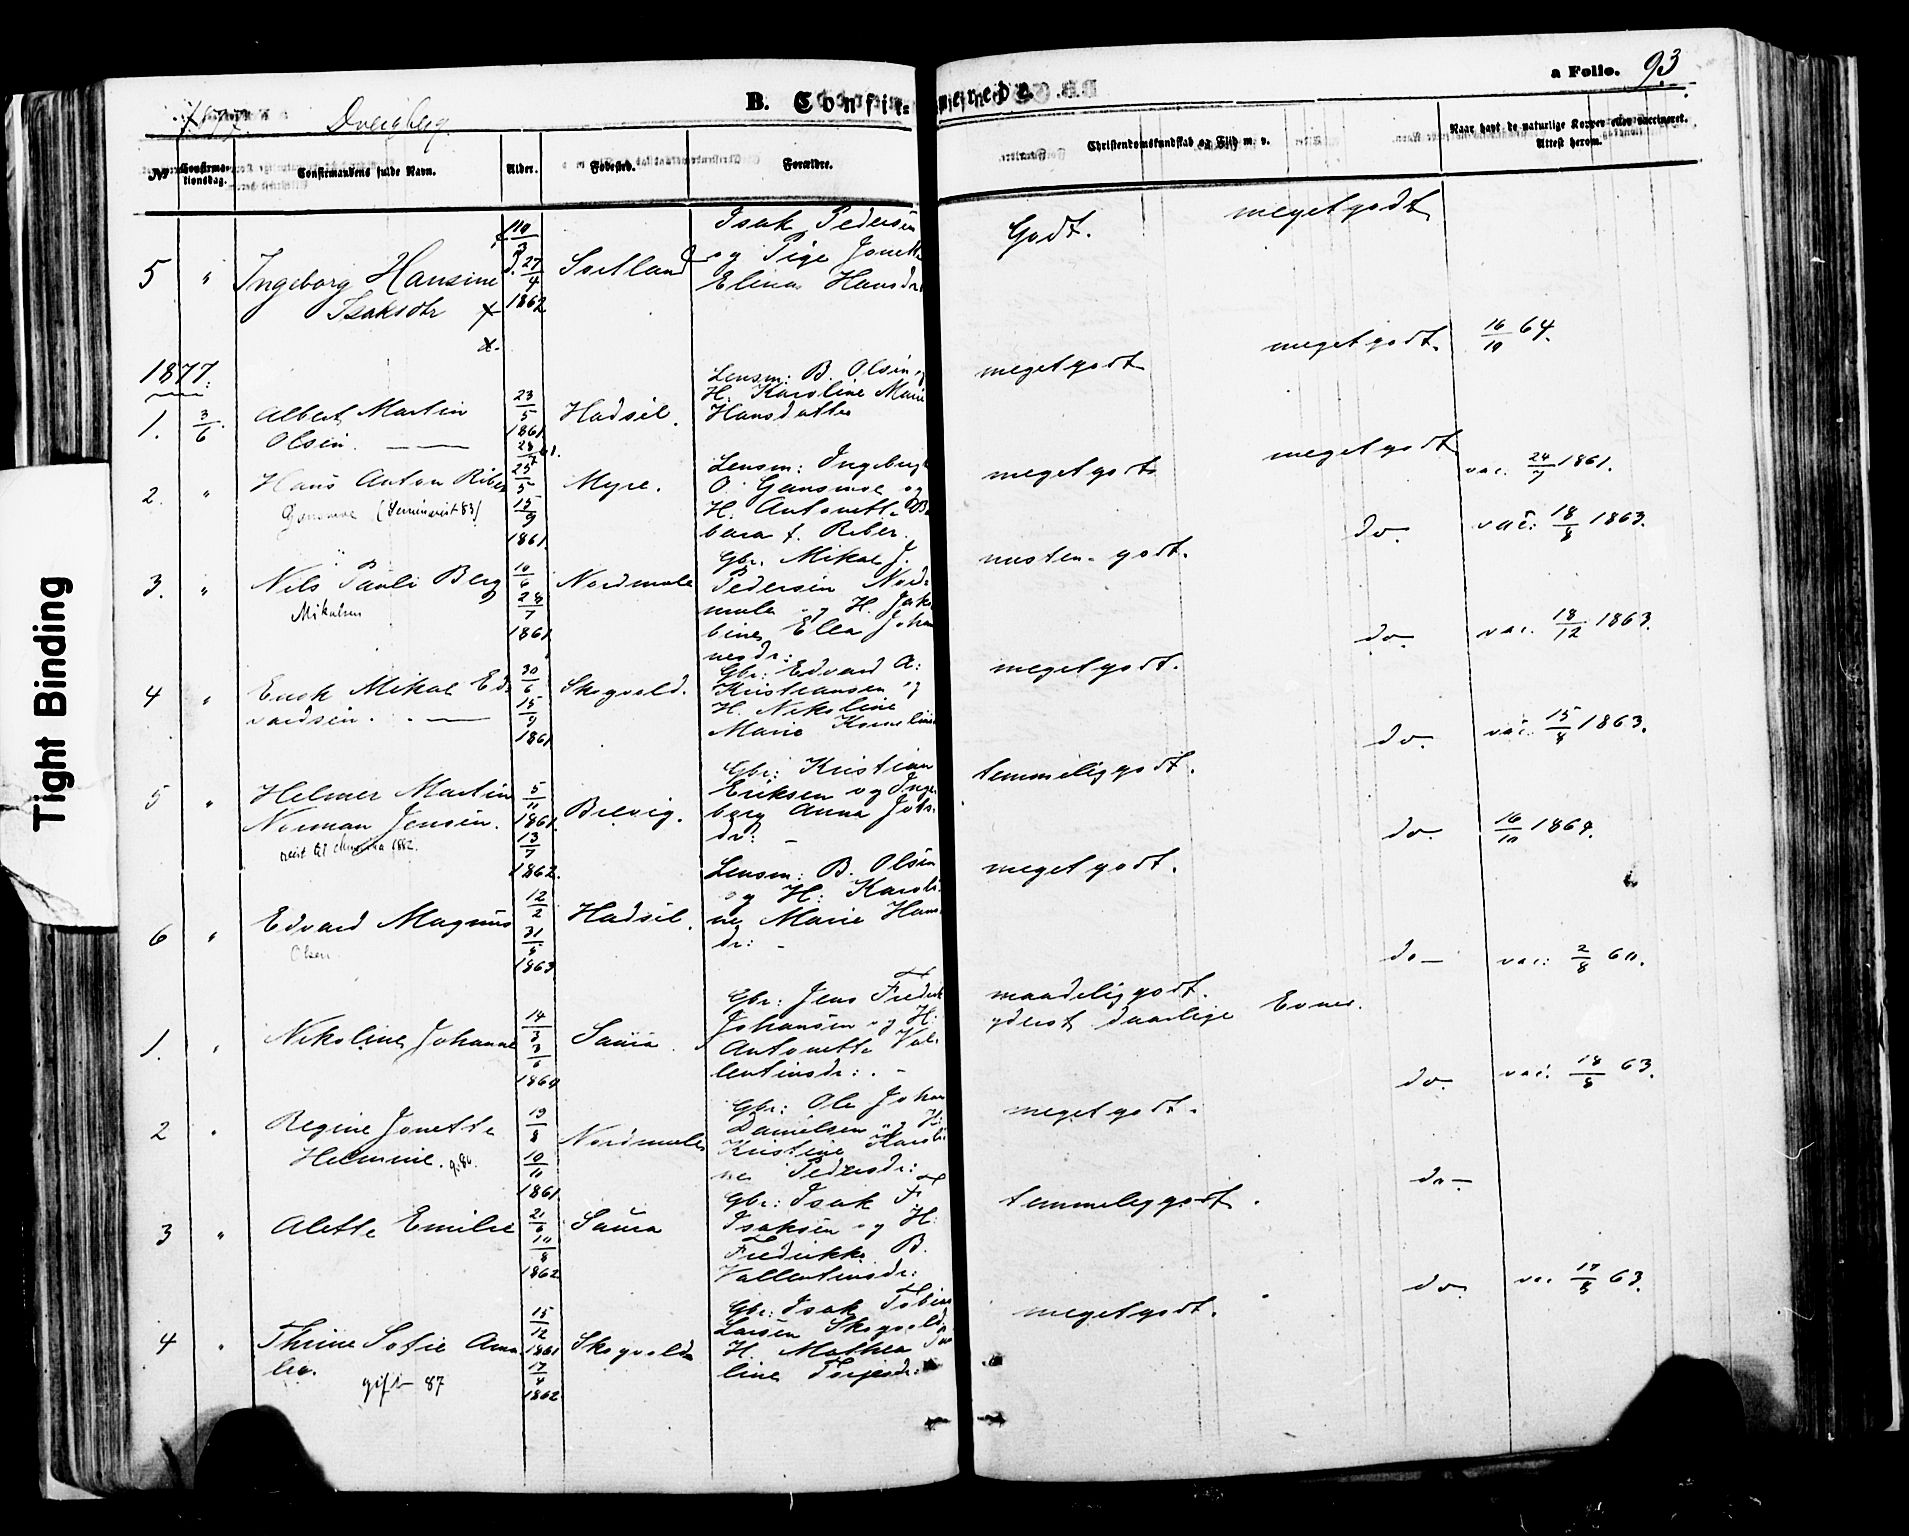 Tight Binding
a Folio. 93.
B. Confirmerede.
1877. Dverberg.
No
Confirmationsdag.
Confirmandens fulde Navn.
Alder.
Fødested.
Forældre.
Christendomskundskab og Flid m. v.
Naar havt de naturlige Kopper eller vaccineret. Attest herom.
5 " Ingeborg Hansine
Isaksdtr
10/3
27/4
1862
Isak Pedersen
og Pige Jonette
Elina Hansdr
Godt.
meget godt
1877.
1. 3/6 Albert Martin
Olsen.
23/5
1861
28/7 61.
Hadsel.
Lensm: B. Olsen og
H. Karoline Marie
Hansdatter
meget godt
meget godt.
16/10 64.
2. " Hans Anton Riber
(Seminarist 83)
25/5
15/9
1861.
Myre.
Lensm: Ingebrigt
O. Gansmoe og
H. Antonette Bar
bara f. Riber.
meget godt
meget godt
vac. 24/7 1861.
3. " Nils Pauli Berg
Mikalsen
10/6
28/7
1861.
Nordmele
Gbr. Mikal J.
Pedersen Nord-
mele og H. Jako
bine Elea Johan
nesdr:
næsten godt.
do.
vac: 18/8 1863.
4 " Enok Mikal Ed-
vardsen.
30/6
15/9
1861
Skogvold.
Gbr: Edvard A:
Kristiansen og
H. Nikoline
Marie Korneline
meget godt.
do.
vac. 18/12 1863.
5 " Helmer Martin
Norman Jensen.
reist til Amerika 1882.
5/11
1861.
13/7
1862.
Brevig.
Gbr: Kristian
Eriksen og Inge
borg Anna Jobs
dr:
temmelig godt.
do.
vac. 15/8 1863.
6 " Edvard Magnus
Olsen.
12/2
31/5
1863
Hadsel.
Lensm: B. Olsen
og H: Karoli-
ne Marie Hans
dr:
meget godt.
do.
16/10 1864.
1. " Nikoline Johanne
14/3
3/6
1860
Saura.
Gbr: Jens Fredrik
Johansen og H:
Antonette Val-
lentinsdr:
maadelig godt.
yderst daarlige Evner.
do
vac: 2/8 60.
2 " Regine Jonette
Helmine. g. 86.
19/8
10/11
1861
Nordmele
Gbr: Ole Johan
Danielsen og H:
Kristine Karoli
ne Pedersdr:
meget godt.
do.
vac. 18/8 63.
3 " Alette Emilie
21/6
10/8
1862
Saura
Gbr: Isak F
Isaksen og H:
Fredrikke B.
Vallentinsdr:
temmelig godt.
do
4 " Thrine Sofie Ama
lia.
gift 87
15/12
1861
17/4
1862
Skogvold
Gbr: Isak Tobias
Larsen Skogvold
H. Mathea
line Torjesdr:
meget godt.
do.
va. 17/8 63.